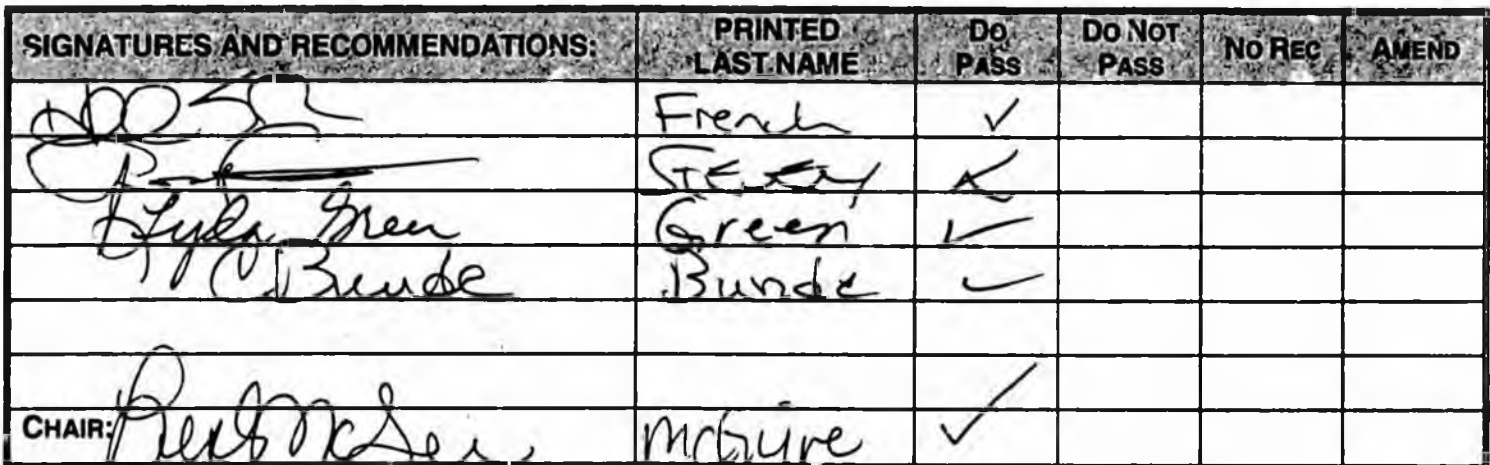 SIGNATURES AND RECOMMENDATIONS: PRINTED LAST NAME DO PASS DO NOT PASS NO REC AMEND
French ✓
✓
Lyda Green Green ✓
C Bunde Bunde ✓
CHAIR: McGuire ✓